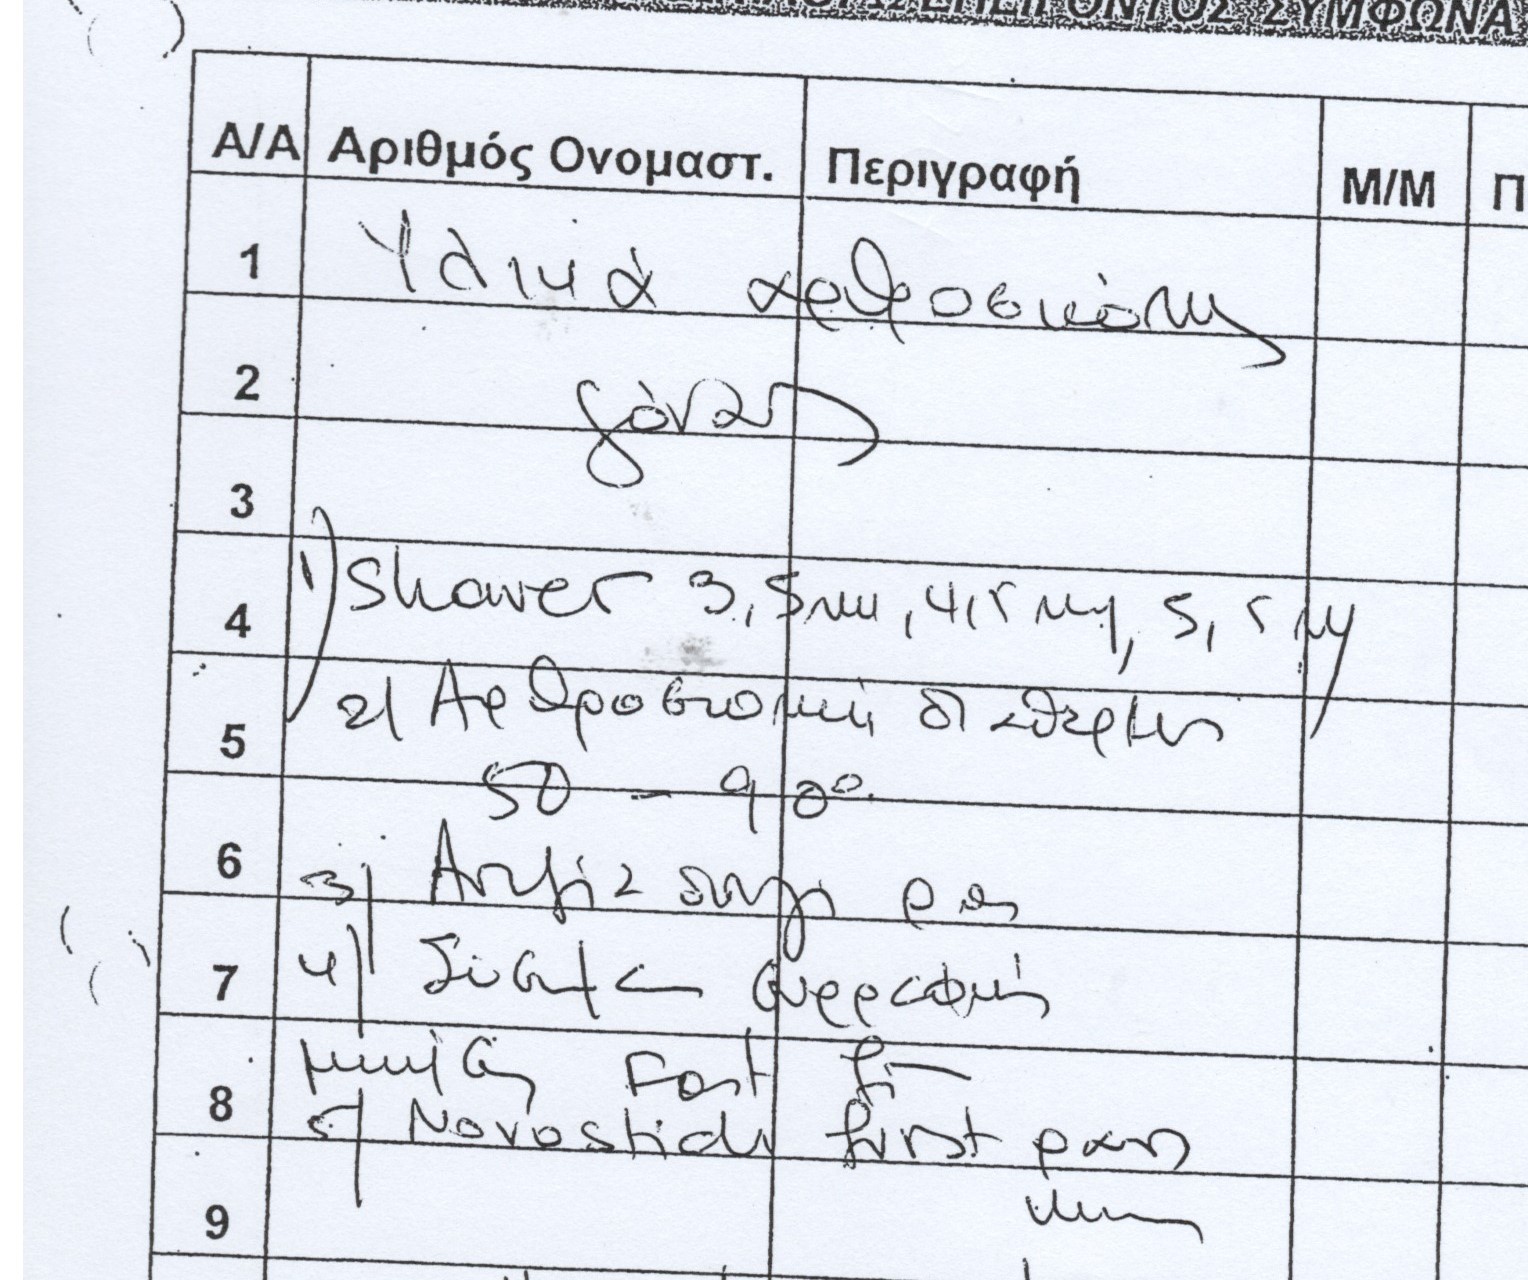 ΕΠΕΙΓΟΝΤΟΣ ΣΥΜΦΩΝΑ
Α/Α Αριθμός Ονομαστ. Περιγραφή Μ/Μ Π
1 Υλικά αρθροσκόπησης
2 γόνατος
3
4 1) Shaver 3,5 mm, 4,5 mm, 5,5 mm
5 2) Αρθροσκοπική διαθερμία
50 - 90°
6 3)
7 4) Σύστημα συρραφής
8 μηνίσκου Fast fix
5) Novostich first pass
9